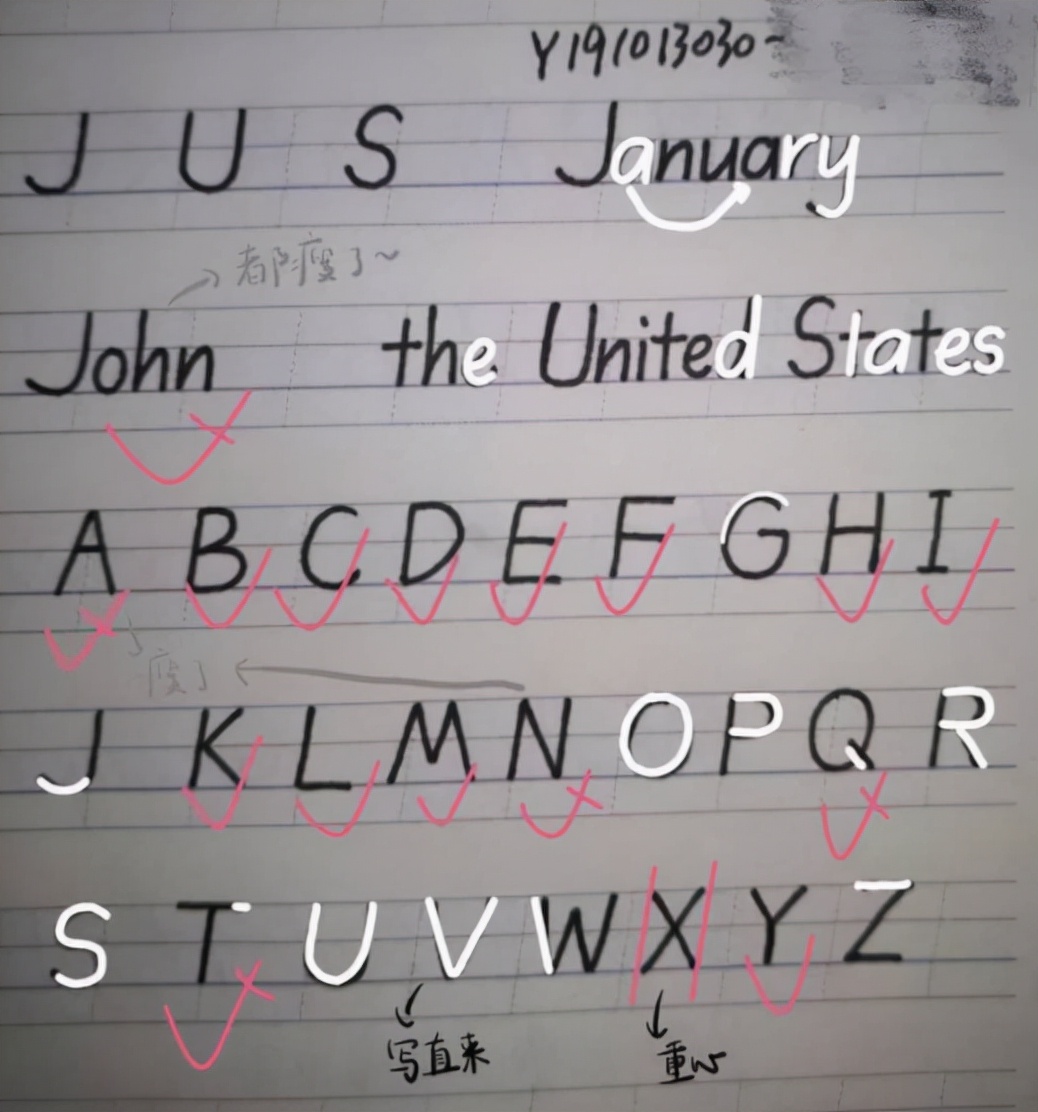 Y191013030~
J U S January
都瘦了~
John the United States
A B C D E F G H I
瘦了
J K L M N O P Q R
S T U V W X Y Z
写直来
重心